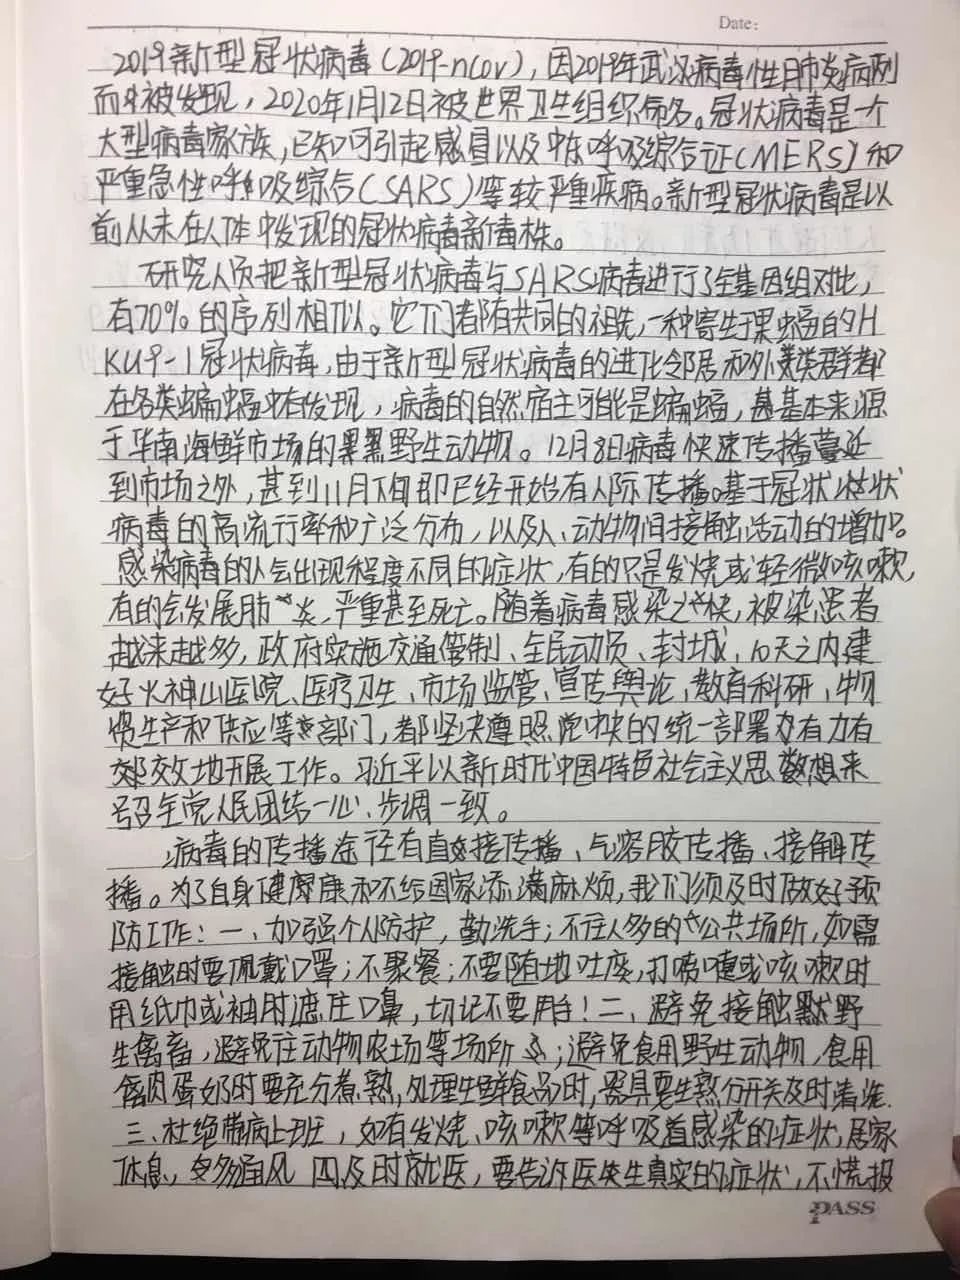 Date:
2019新型冠状病毒(2019-nCov),因2019年武汉病毒性肺炎病例
而被发现,2020年1月12日被世界卫生组织命名。冠状病毒是一个
大型病毒家族,已知可引起感冒以及中东呼吸综合征(MERS)和
严重急性呼吸综合(SARS)等较严重疾病。新型冠状病毒是以
前从未在人体中发现的冠状病毒新毒株。
研究人员把新型冠状病毒与SARS病毒进行了全基因组对比,
有70%的序列相似。它们都有共同的祖先,一种寄生于果蝠的H
KU9-1冠状病毒,由于新型冠状病毒的进化邻居和外类群都
在各类蝙蝠中有发现,病毒的自然宿主可能是蝙蝠,甚基本来源
于华南海鲜市场的野生动物。12月8日病毒快速传播蔓延
到市场之外,甚到11月下旬即已经开始有人际传播。基于冠状状
病毒的高流行率和广泛分布,以及人、动物间接触活动的增加。
感染病毒的人会出现程度不同的症状,有的只是发烧或轻微咳嗽,
有的会发展肺炎,严重甚至死亡。随着病毒感染之快,被染患者
越来越多,政府实施交通管制、全民动员、封城、10天之内建
好火神山医院、医疗卫生、市场监管、宣传舆论、教育科研、物
资生产和供应等部门,都坚决遵照党中央的统一部署有力有
效地开展工作。习近平以新时代中国特色社会主义思想来
号召全党人民团结一心、步调一致。
病毒的传播途径有直接传播、气溶胶传播、接触传
播。为了自身健康和不给国家添满麻烦,我们须及时做好预
防工作:一、加强个人防护,勤洗手;不往人多的公共场所,如需
接触时要佩戴口罩;不聚餐;不要随地吐痰,打喷嚏或咳嗽时
用纸巾或袖肘遮住口鼻,切记不要用手!二、避免接触野
生禽畜,避免往动物农场等场所;避免食用野生动物,食用
禽肉蛋奶时要充分煮熟,处理生鲜食品时,器具要生熟分开及时清洗.
三、杜绝带病上班,如有发烧、咳嗽等呼吸道感染的症状,居家
休息,多通风 四及时就医,要告诉医生真实的症状,不慌报
PASS